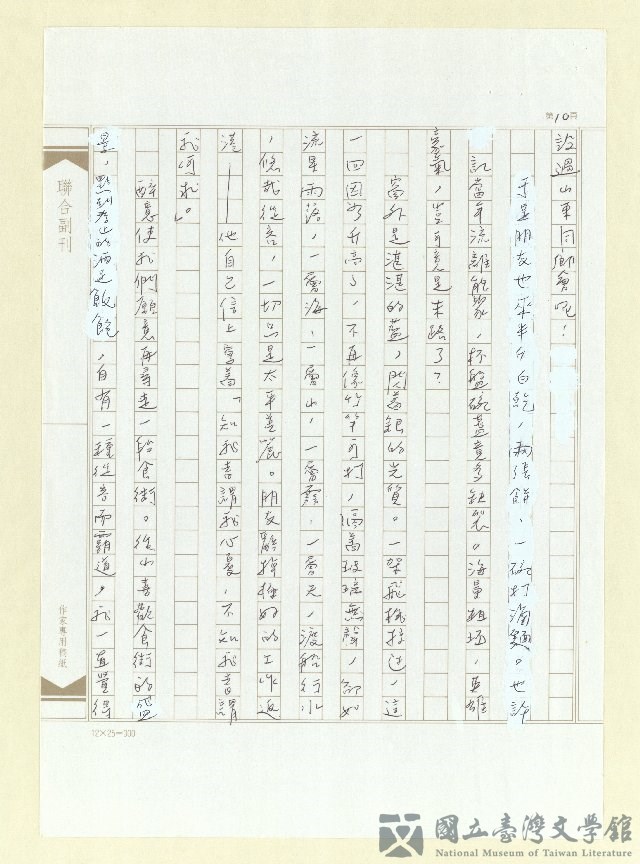 第10頁
設過山東同鄉會呢！
于是朋友也來半斤白乾，兩張餅，一碗打滷麵。也許
記當年流離能聚，杯盤碗盞竟多缺裂。海量粗坯，英雄
意氣，豈可竟是末路了？
窗外是湛湛的藍，閃著銀的光質。一架飛機拉過，這
一回因為升高了，不再像竹竿可打，隔著玻璃無聲，卻如
流星雨落，一層海，一層山，一層雲，一層天，渡船行水
，悠哉從容，一切只是太平美麗。朋友辭掉極好的工作返
港——他自己信上寫著「知我者謂我心憂，不知我者謂
我何求」。
醉意使我們願意再尋走一輪食街。從小喜歡食街的盛
景，點到為止的酒足飯飽，自有一種從容而霸道，我一直覺得
聯合副刊
作家專用稿紙
12×25=300
國立臺灣文學館
National Museum of Taiwan Literature